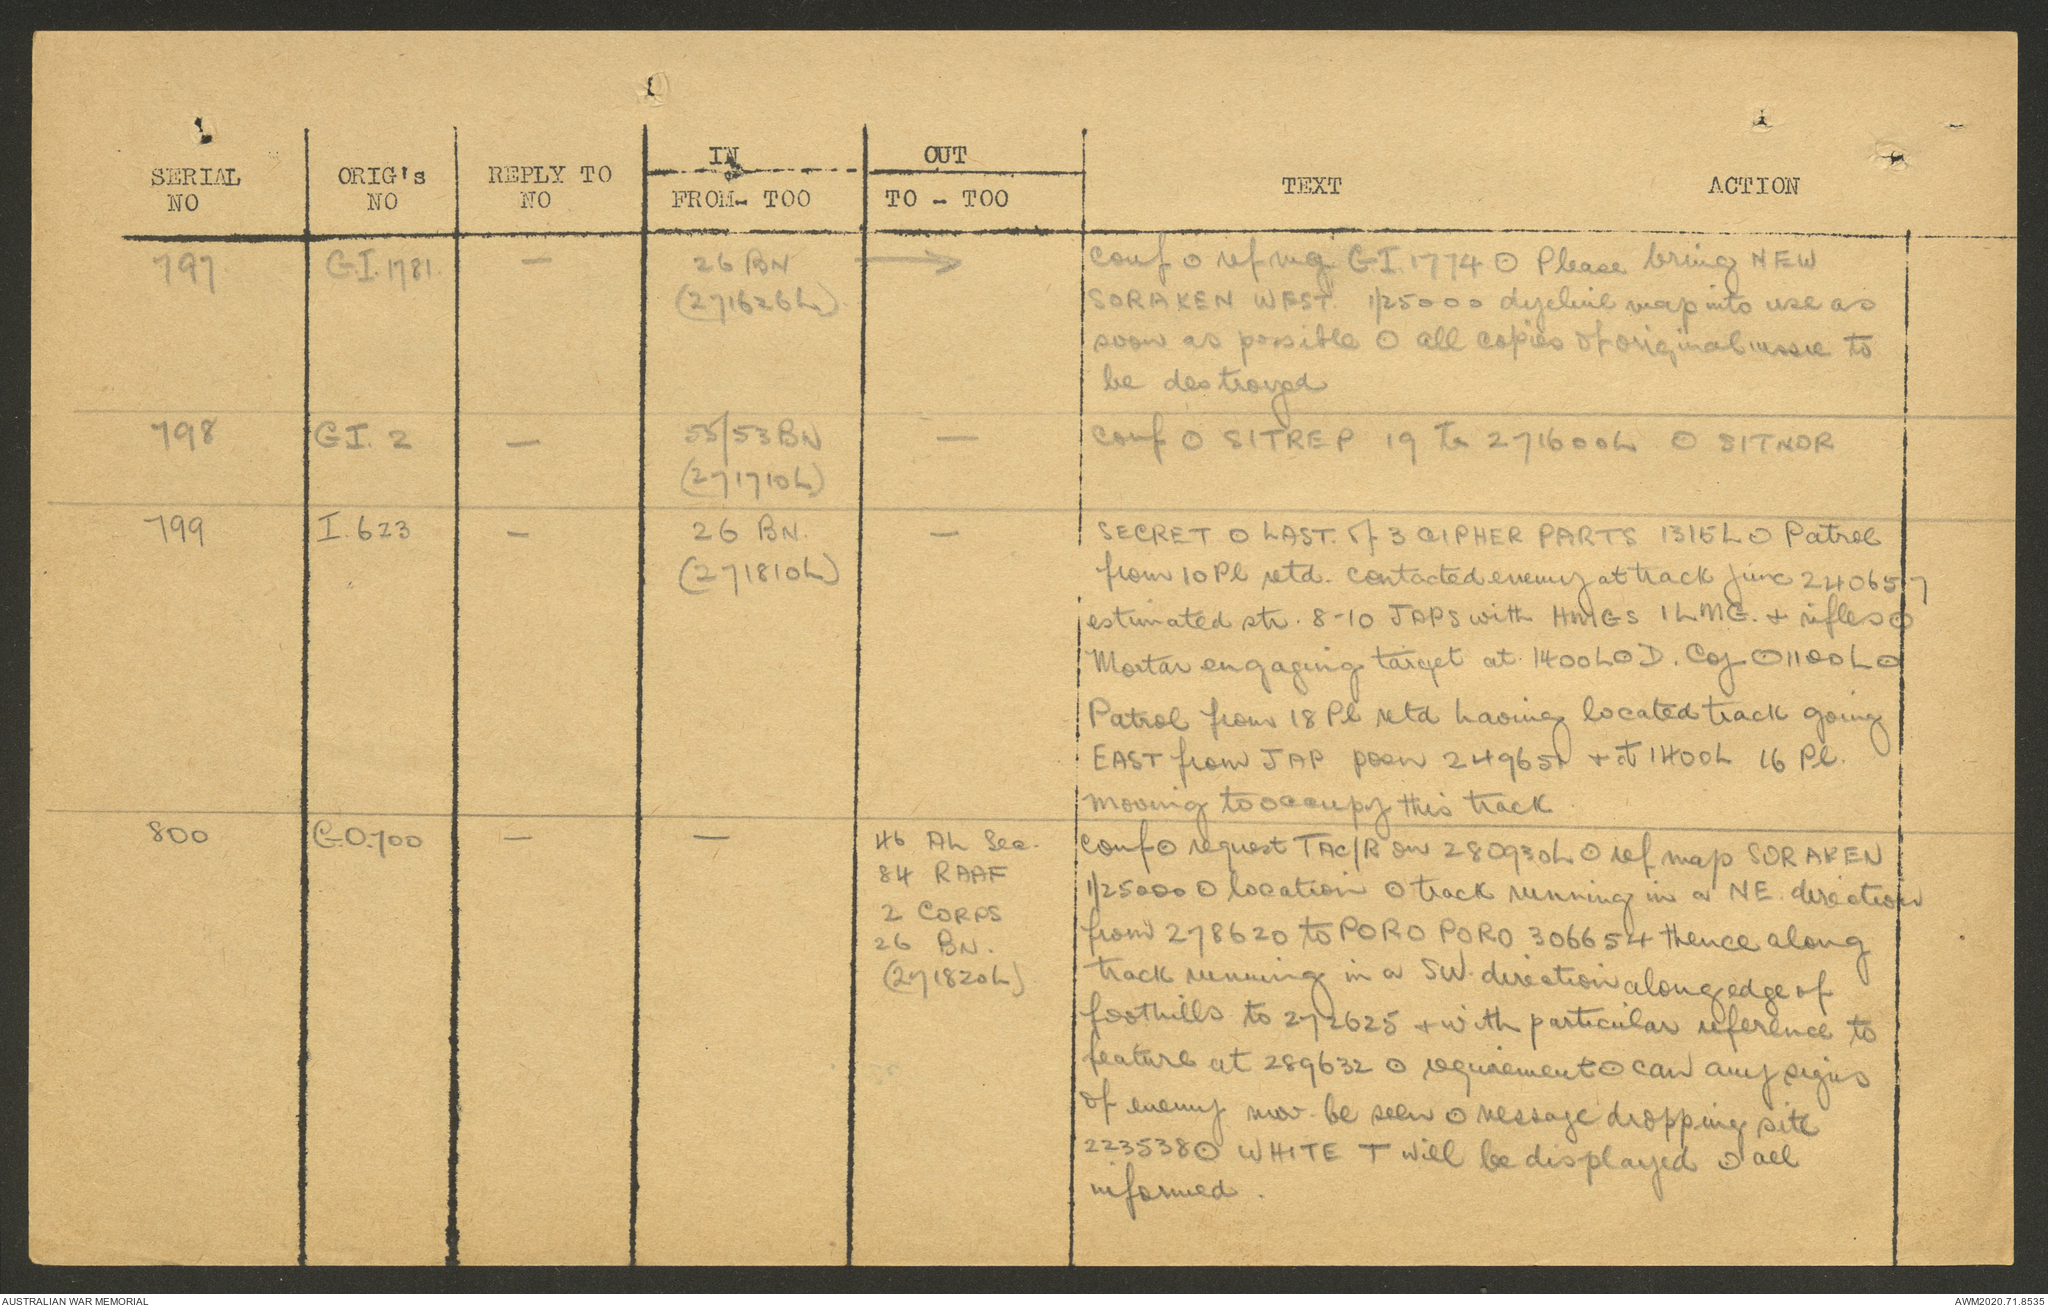 SERIAL NO
ORIG's NO
REPLY TO NO
IN
FROM - TOO
OUT
TO - TOO
TEXT
ACTION
797
GI.1781.
—
26 BN
(271626L).
→
Conf O ref mg GI.1774 O Please bring NEW
SORAKEN WEST. 1/25000 dyeline map into use as
soon as possible O all copies of original issue to
be destroyed
798
GI. 2
—
55/53 BN
(271710L)
—
Conf O SITREP 19 to 271600L O SITNOR
799
I. 623
—
26 BN.
(271810L)
—
SECRET O LAST. of 3 CIPHER PARTS 1315L O Patrol
from 10 Pl retd. contacted enemy at track junc 240657
estimated str. 8-10 JAPS with HMGS 1 LMG. + rifles O
Mortar engaging target at 1400L O D. Coy O 1100L O
Patrol from 18 Pl retd having located track going
EAST from JAP posn + at 1400L 16 Pl.
moving to occupy this track
800
G.O.700
—
—
46 AL Sec.
84 RAAF
2 CORPS
26 BN.
(271820L)
Conf O request TAC/R on 280930L O ref map SORAKEN
1/25000 O location O track running in a NE. direction
from 278620 to PORO PORO 306654 thence along
track running in a SW. direction along edge of
foothills to 272625 + with particular reference to
feature at 289632 O requirement O can any signs
of enemy mov. be seen O message dropping site
223538 O WHITE T will be displayed O all
informed.
AUSTRALIAN WAR MEMORIAL
AWM2020.71.8535